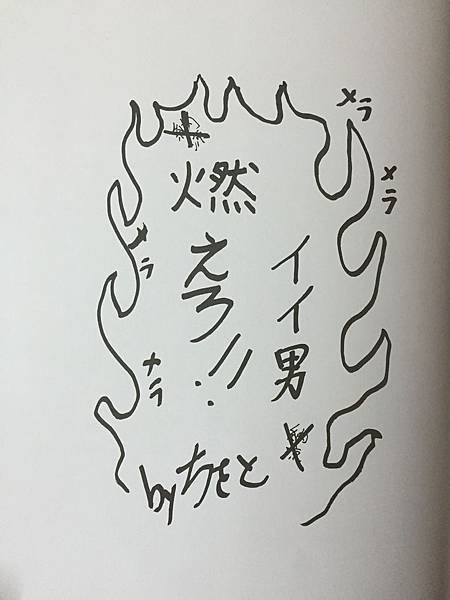 イイ男
燃えろ!!
byちさと
メラ
メラ
メラ
メラ